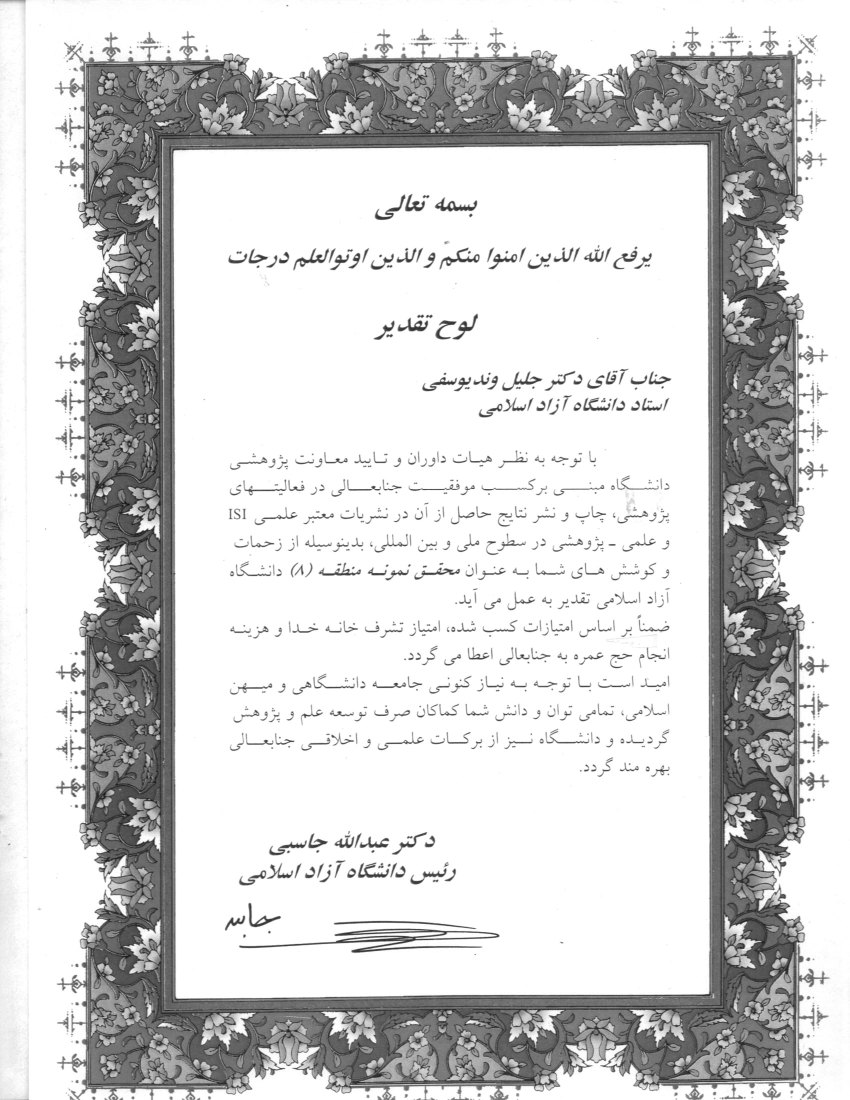 بسمه تعالی
یرفع الله الذین امنوا منکم و الذین اوتوالعلم درجات
لوح تقدیر
جناب آقای دکتر جلیل وندیوسفی
استاد دانشگاه آزاد اسلامی
با توجه به نظر هیات داوران و تایید معاونت پژوهشی
دانشگاه مبنی برکسب موفقیت جنابعالی در فعالیتهای
پژوهشی، چاپ و نشر نتایج حاصل از آن در نشریات معتبر علمی ISI
و علمی ـ پژوهشی در سطوح ملی و بین المللی، بدینوسیله از زحمات
و کوشش های شما به عنوان محقق نمونه منطقه (۸) دانشگاه
آزاد اسلامی تقدیر به عمل می آید.
ضمناً بر اساس امتیازات کسب شده، امتیاز تشرف خانه خدا و هزینه
انجام حج عمره به جنابعالی اعطا می گردد.
امید است با توجه به نیاز کنونی جامعه دانشگاهی و میهن
اسلامی، تمامی توان و دانش شما کماکان صرف توسعه علم و پژوهش
گردیده و دانشگاه نیز از برکات علمی و اخلاقی جنابعالی
بهره مند گردد.
دکتر عبدالله جاسبی
رئیس دانشگاه آزاد اسلامی